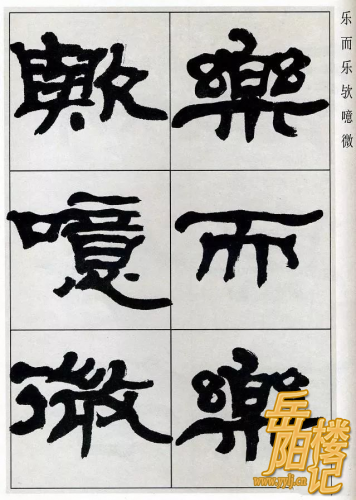 乐而乐欤噫微
樂而樂
歟噫微
岳阳楼记
www.yylj.cn